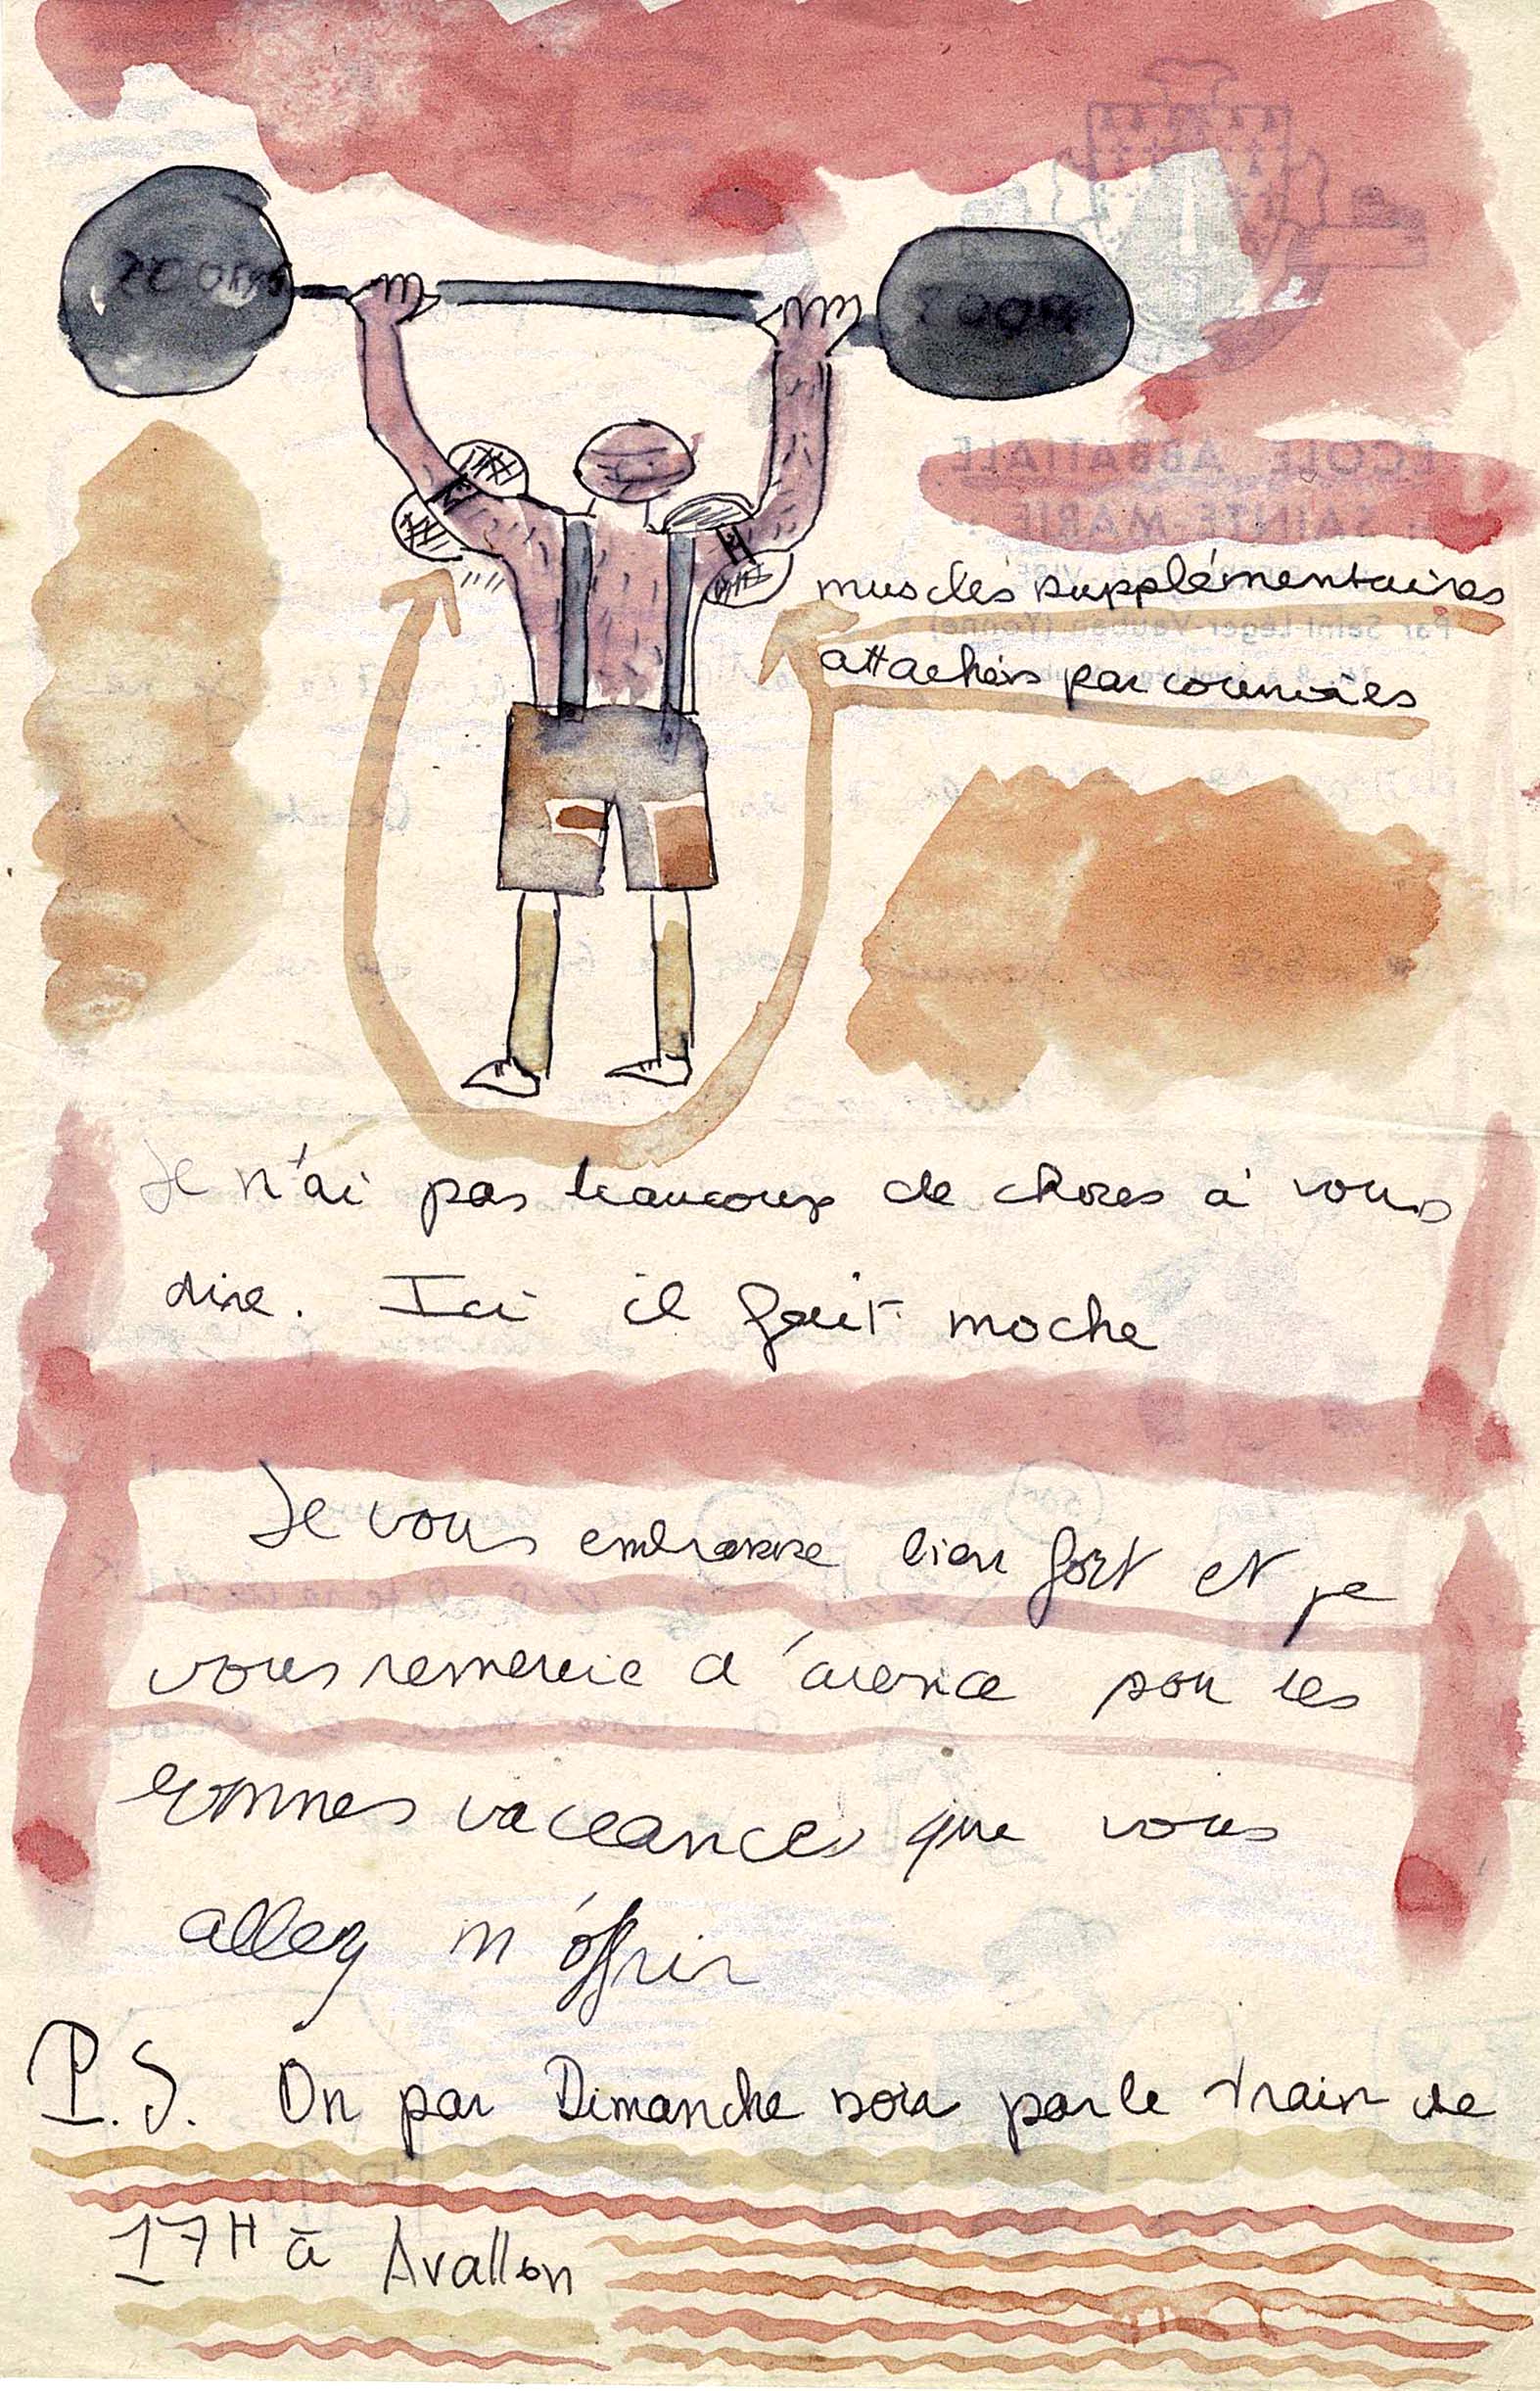 200 KGS
200 KG
muscles supplémentaires
attachés par courroies
Je n'ai pas beaucoup de choses à vous
dire. Ici il fait moche
Je vous embrasse bien fort et je
vous remercie d'avance pour les
bonnes vaceances que vous
allez m'offrir
P.S. On par Dimanche soir par le train de
17H à Avallon
ÉCOLE ABBATIALE
SAINTE-MARIE
Par Saint-Léger-Vauban (Yonne)